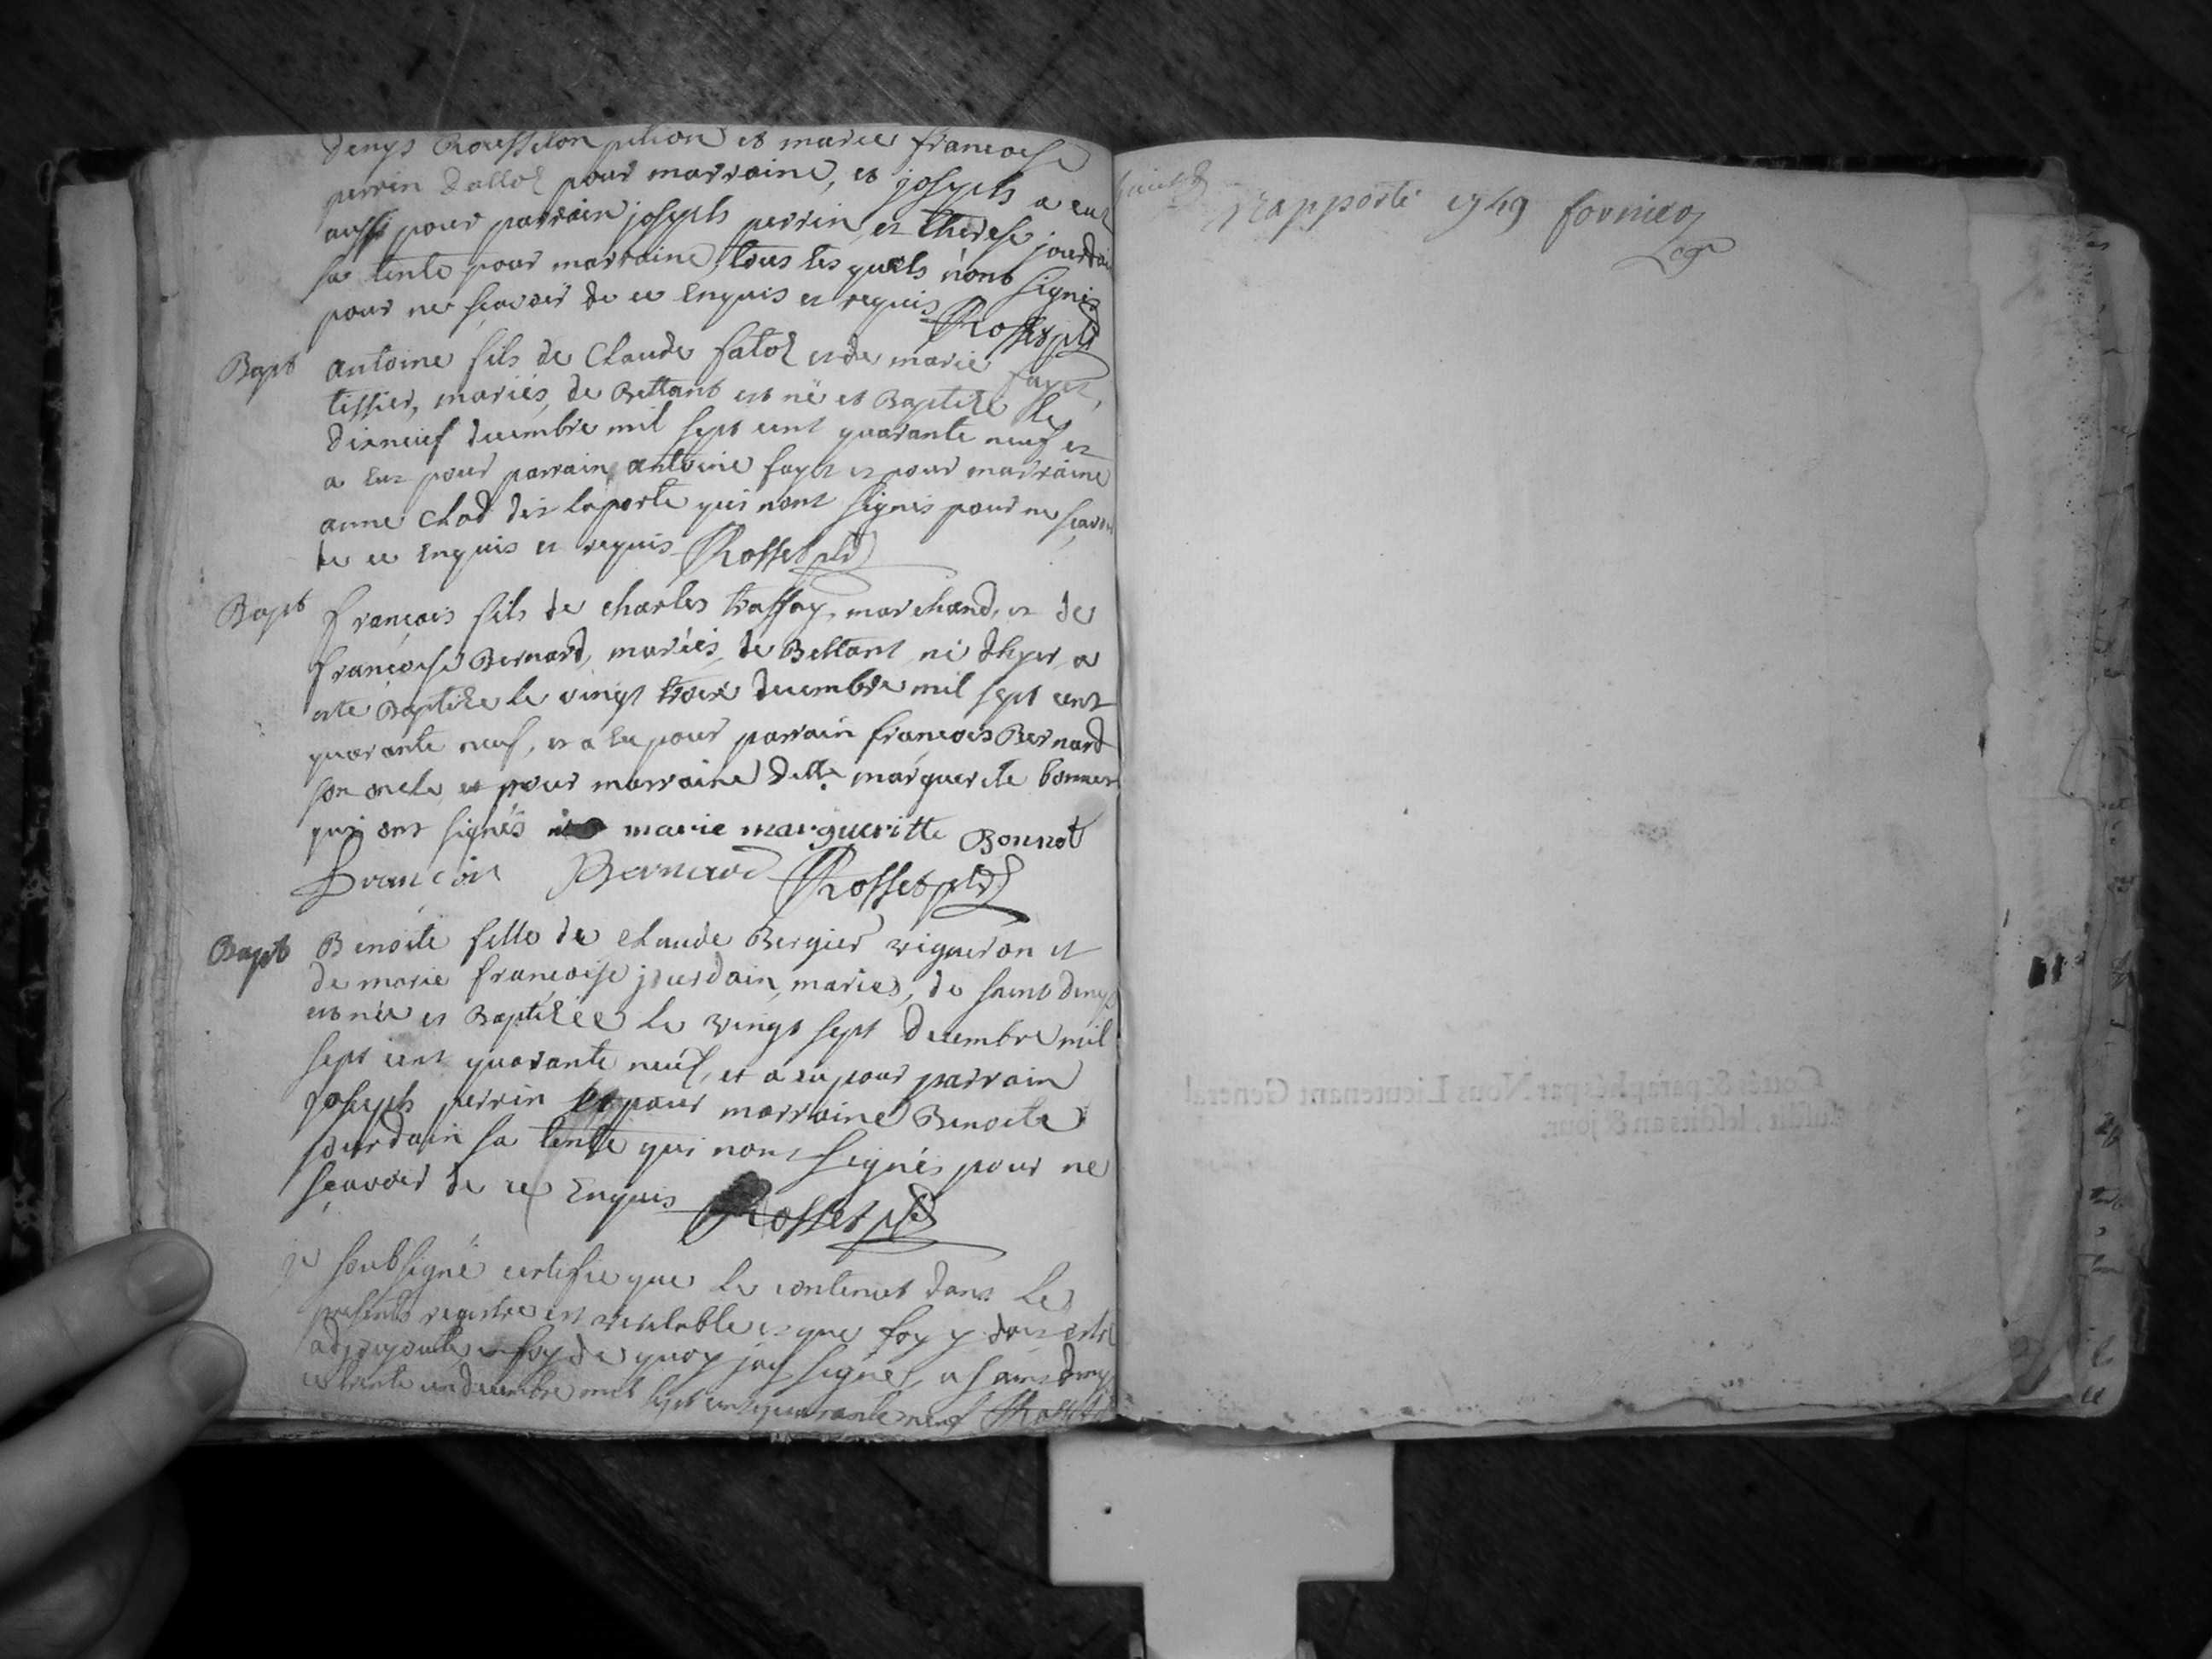 denys Rousselon pition et marie francoise
perrin dalloz pour marraine, et joseph a eut
aussi pour parrain joseph perrin et therese jourdain
sa tente pour marraine, tous les quels n'ont signés
pour ne sçavoir de ce enquis et requis Rosset
Bapt antoine fils de Claude fatoz et de marie fayet,
tissier, mariés, de Bettant est né et Baptizé le
dixneuf decembre mil sept cent quarante neuf et
a eut pour parrain antoine fayet et pour marraine
anne Chad dit laporte qui nont signés pour ne sçavoir
de ce enquis et requis Rosset
Bapt françois fils de charles trassay, marchand, et de
françoise Bernard, mariés, de Bettant né d'hyer, a
esté Baptizé le vingt trois decembre mil sept cent
quarante neuf, et a eu pour parrain françois Bernard
son oncle, et pour marraine delle marguerite bonnet
qui ont signés marie margueritte Bonnot
François Bernard Rosset
Bapt Benoite fille de claude Bergier vigneron et
de marie françoise jourdain, mariés, de saint denys
est née et Baptizée le vingt sept decembre mil
sept cent quarante neuf, et a eu pour parrain
joseph perrin et pour marraine Benoite
jourdain sa tente qui nont signés pour ne
sçavoir de ce Enquis Rosset
je soubsigné certifie que le contenut dans le
present registre est veritable et que foy y doit estre
adjoutée, en foy de quoy jay signé, a saint denys
ce trente un decembre mil sept cent quarante neuf Rosset
Rapporté 1749 fornier
Cotté & paraphés par Nous Lieutenant General
susdit, lesdits an & jour.